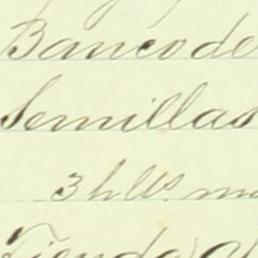 Banco de
Semillas
3 hlls. m
Tienda